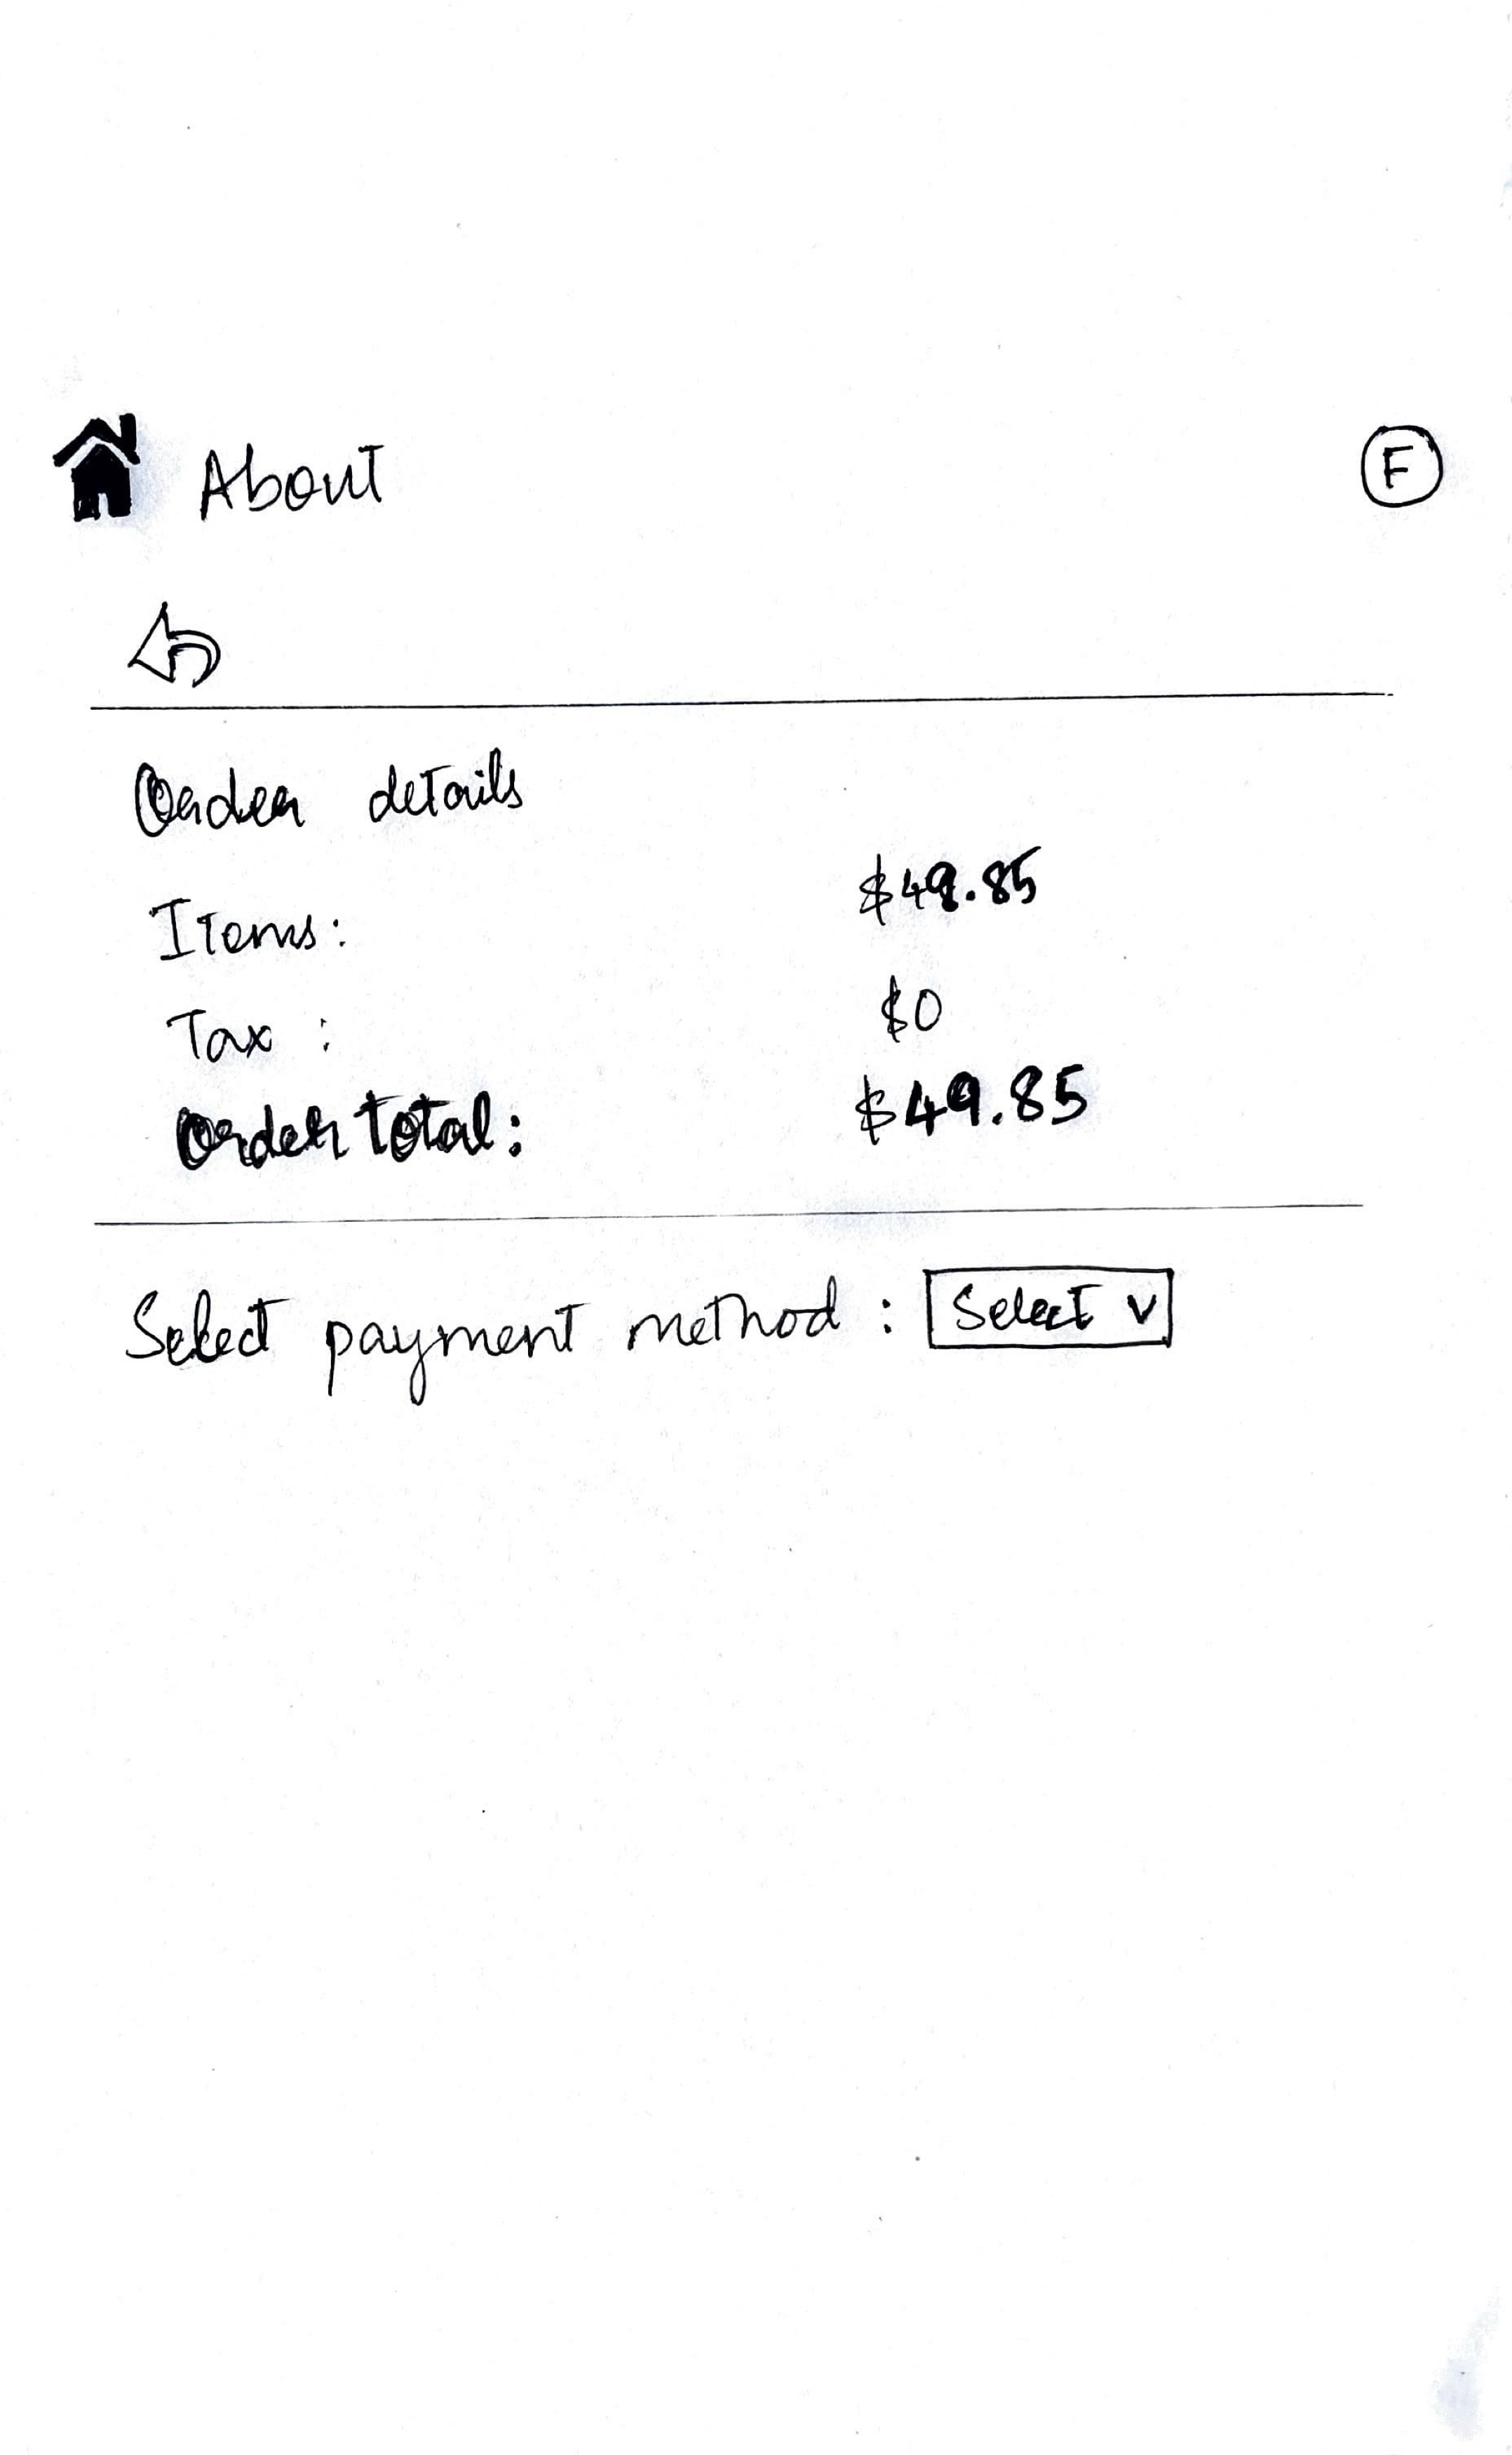 About
F
Order details
Items: $49.85
Tax : $0
Order total: $49.85
Select payment method : Select v